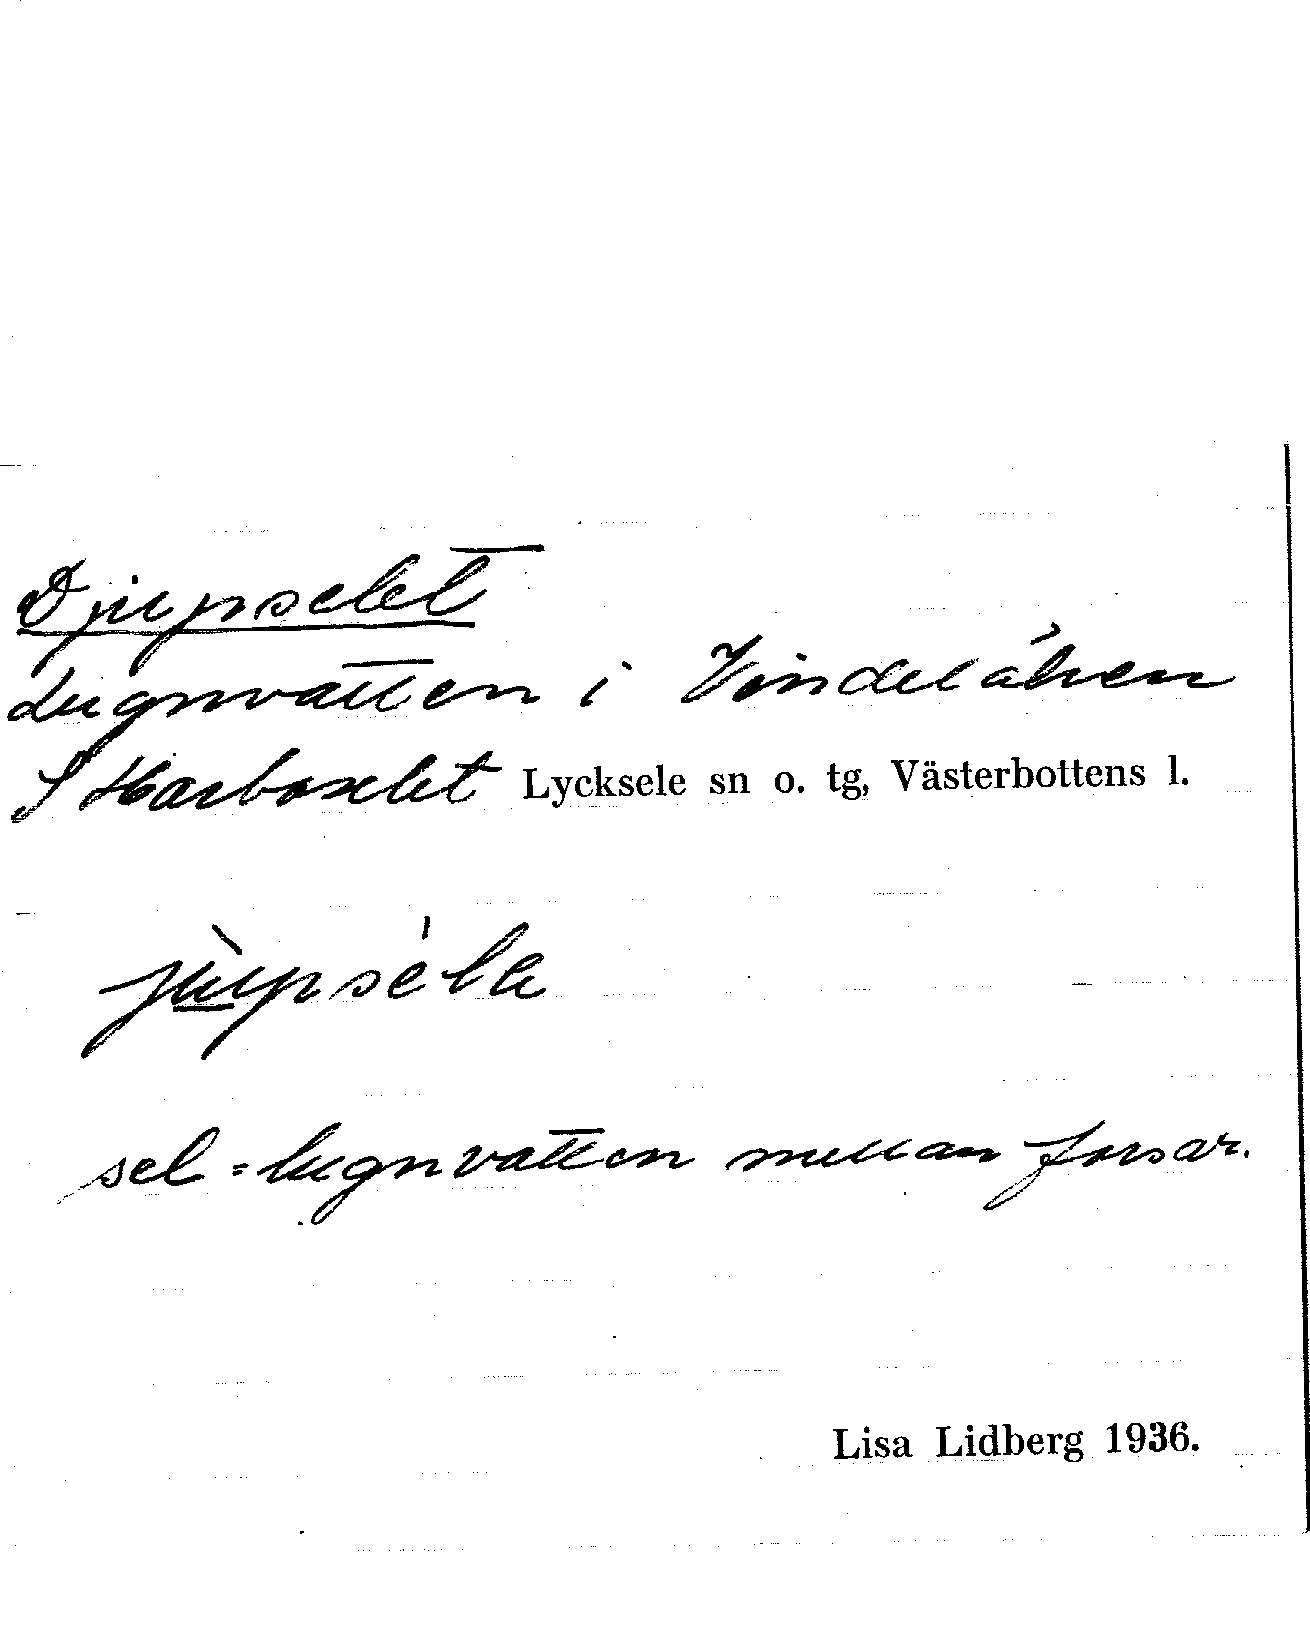 Djupselet
Lugnvatten i Vindelälven
S Harboselet Lycksele sn o. tg, Västerbottens l.
jùpsélɐ
sel = lugnvatten mellan forsar.
Lisa Lidberg 1936.